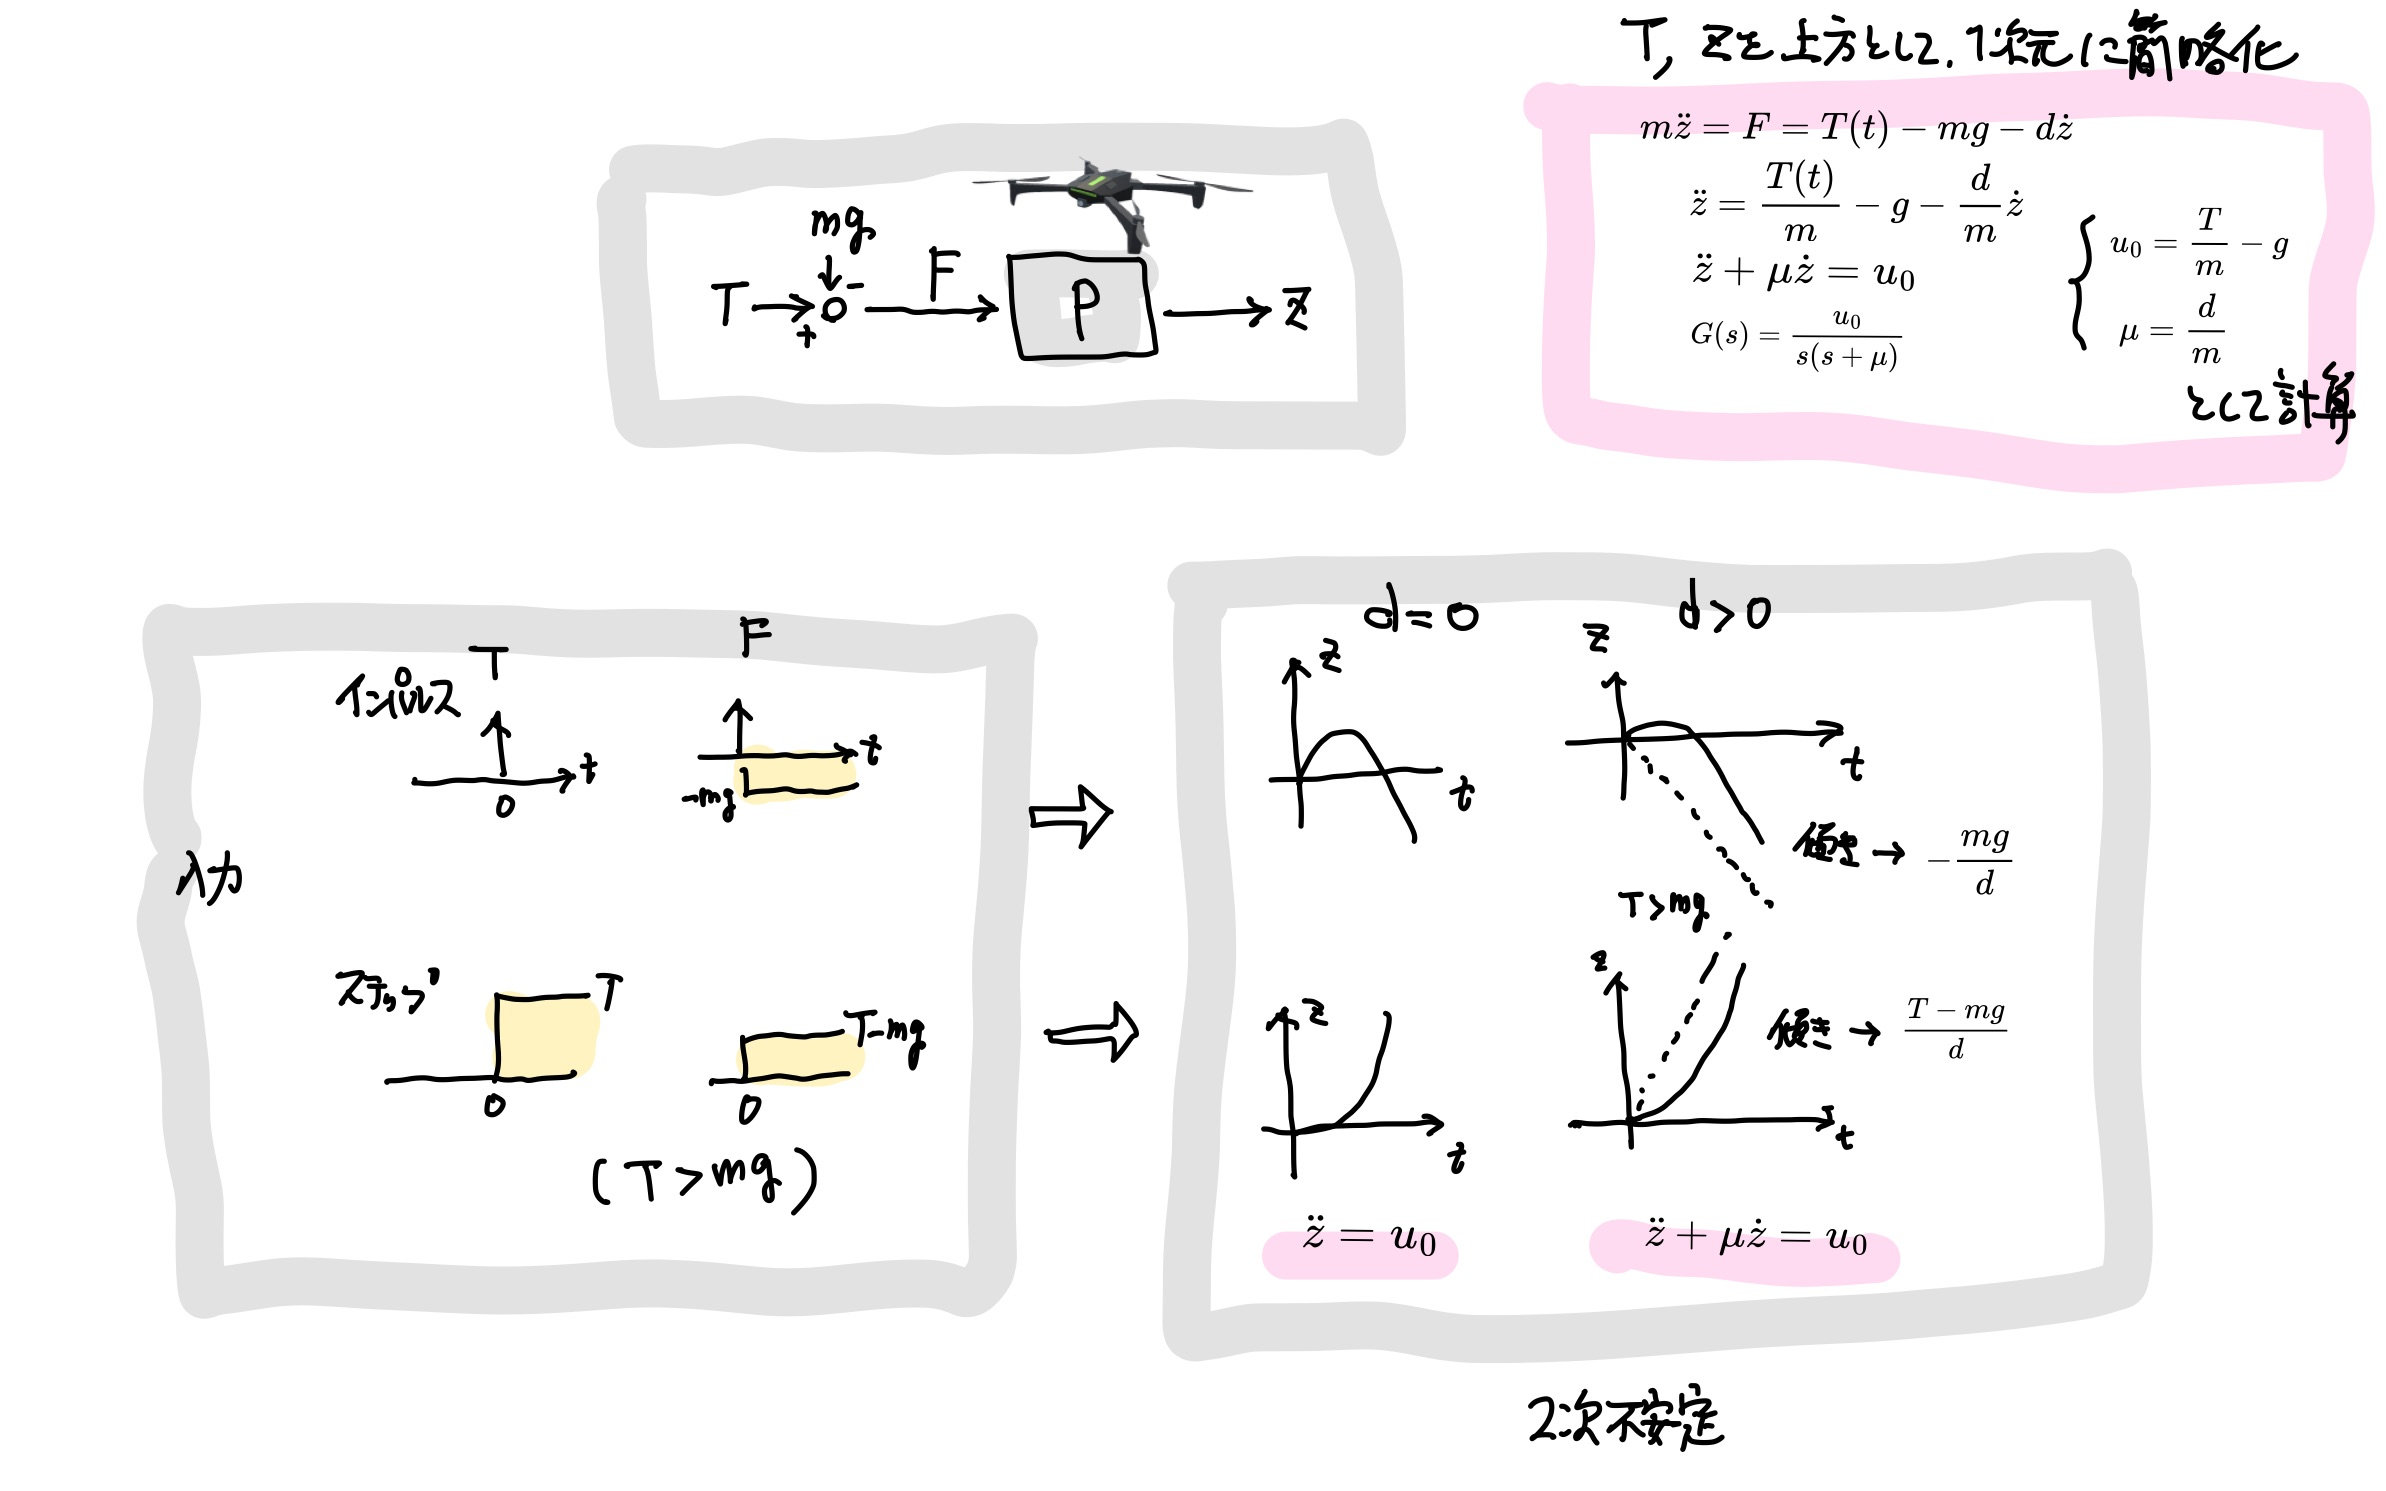 T, zを上方として、1次元に簡略化
m\ddot{z} = F = T(t) − mg − d\dot{z}
\ddot{z} = \frac{T(t)}{m} − g − \frac{d}{m}\dot{z}
\ddot{z} + μ\dot{z} = u_0
G(s) = \frac{u_0}{s(s + μ)}
u_0 = \frac{T}{m} − g
μ = \frac{d}{m}
として計算
mg
T + − F P z
入力
T F
インパルス
t t
0 −mg
ステップ T T−mg
0 0
(T > mg)
d = 0 d > 0
z z
t t
傾き → −\frac{mg}{d}
T > mg
z z
傾き → \frac{T − mg}{d}
t t
\ddot{z} = u_0 \ddot{z} + μ\dot{z} = u_0
2次不安定